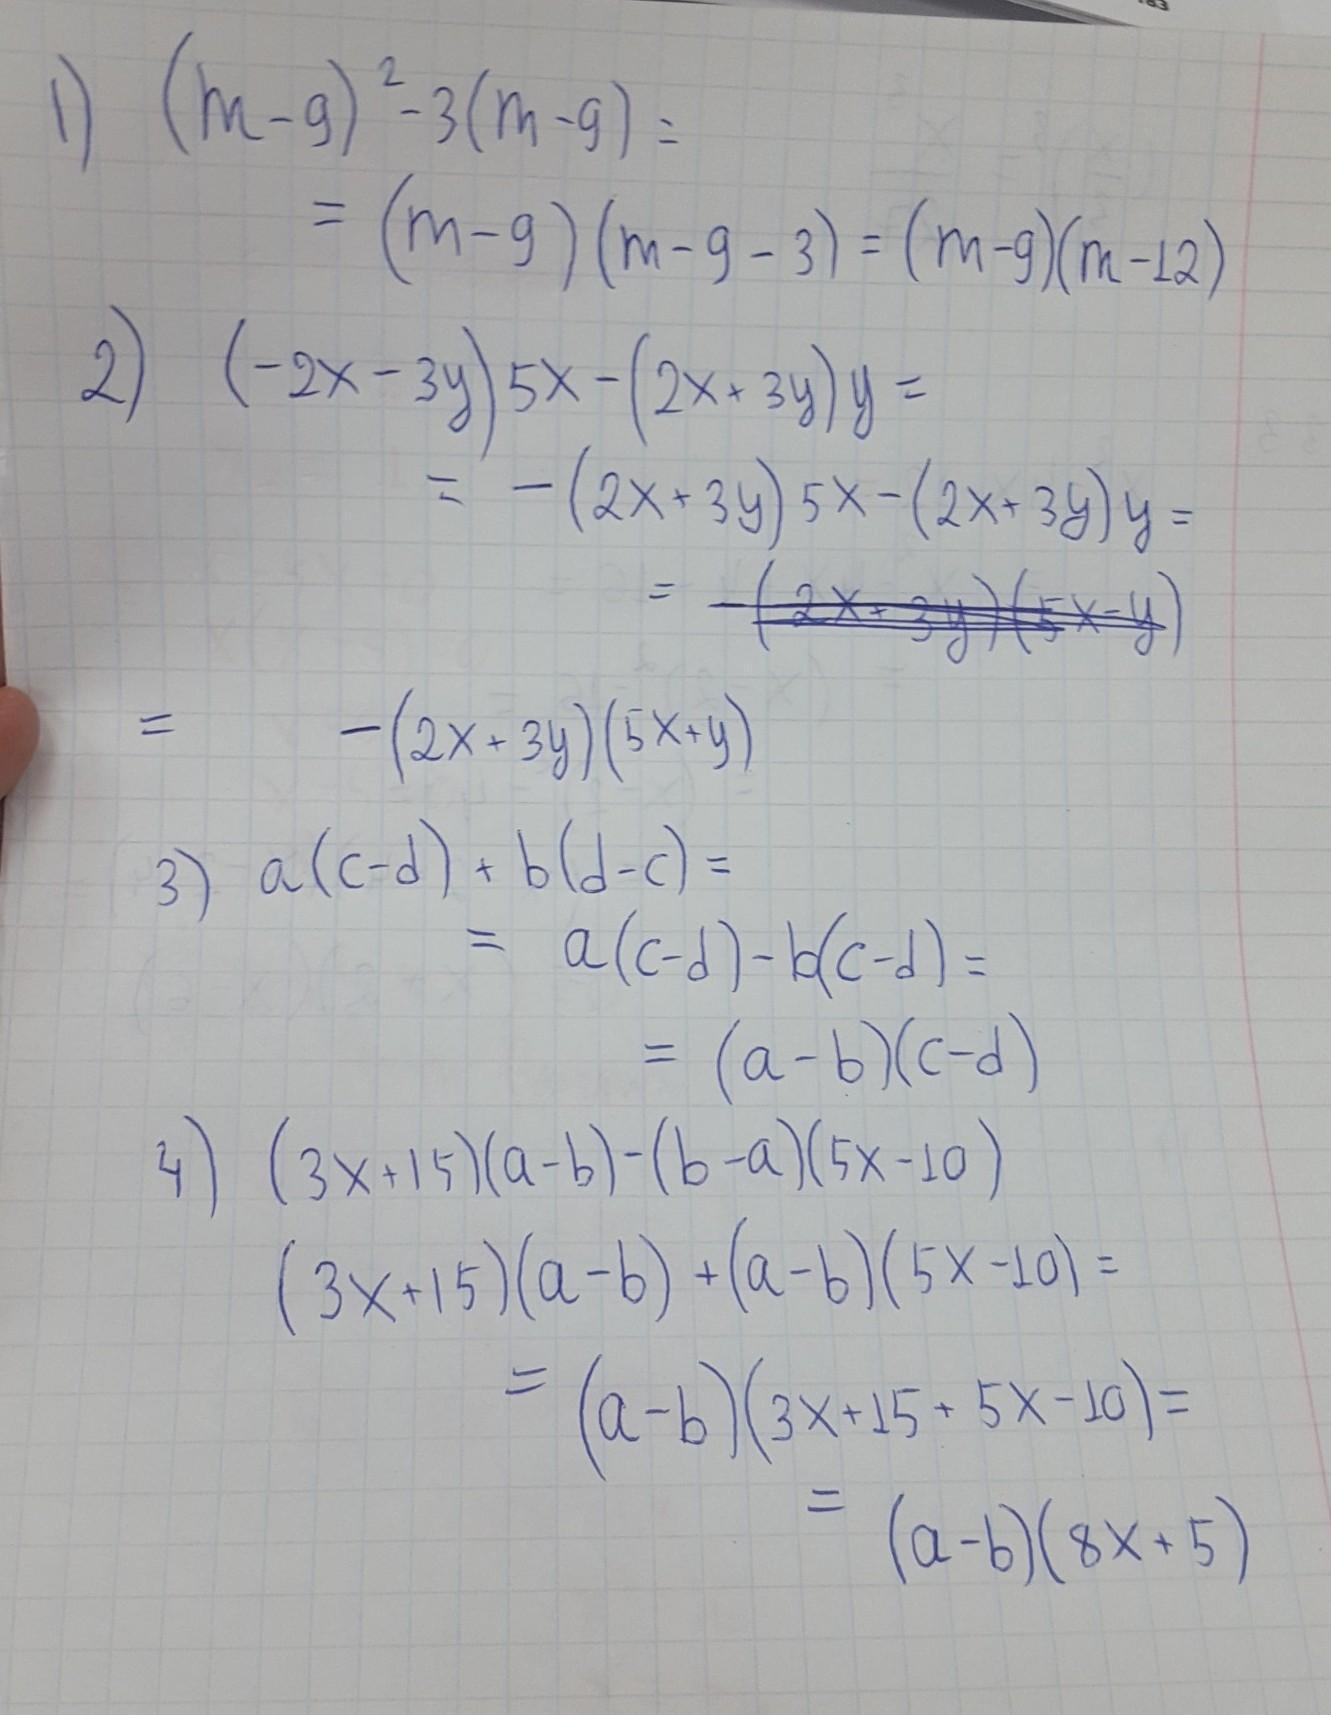 1) (m-9)²-3(m-9)=
= (m-9)(m-9-3)=(m-9)(m-12)
2) (-2x-3y)5x-(2x+3y)y=
= -(2x+3y)5x-(2x+3y)y=
= -(2x+3y)(5x-y)
= -(2x+3y)(5x+y)
3) a(c-d)+b(d-c)=
= a(c-d)-b(c-d)=
= (a-b)(c-d)
4) (3x+15)(a-b)-(b-a)(5x-10)
(3x+15)(a-b)+(a-b)(5x-10)=
= (a-b)(3x+15+5x-10)=
= (a-b)(8x+5)